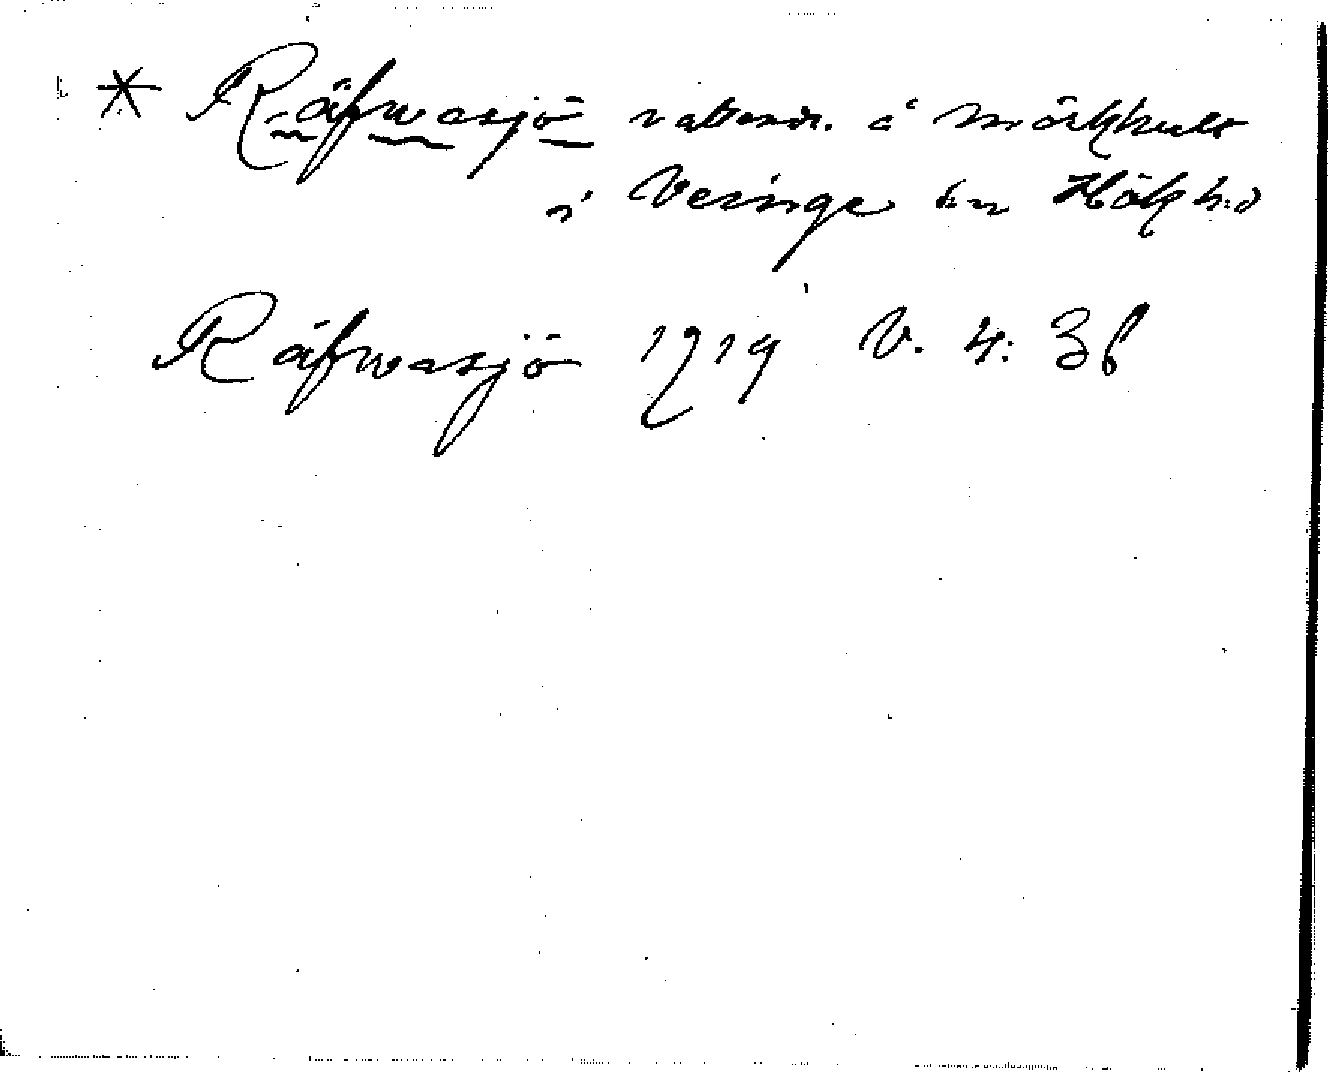 * Räfwasjö vattendr. å Mörkhult
i Veinge sn Hök h:d
Räfwasjö 1719 V. 4: 36